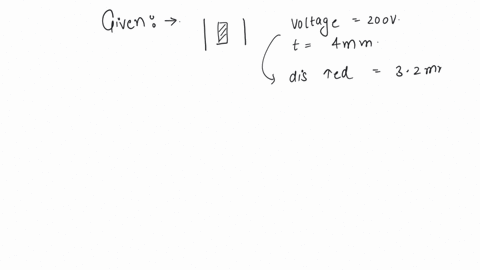 Given: →
voltage = 200V.
t = 4mm.
dis ↑ed = 3.2mm